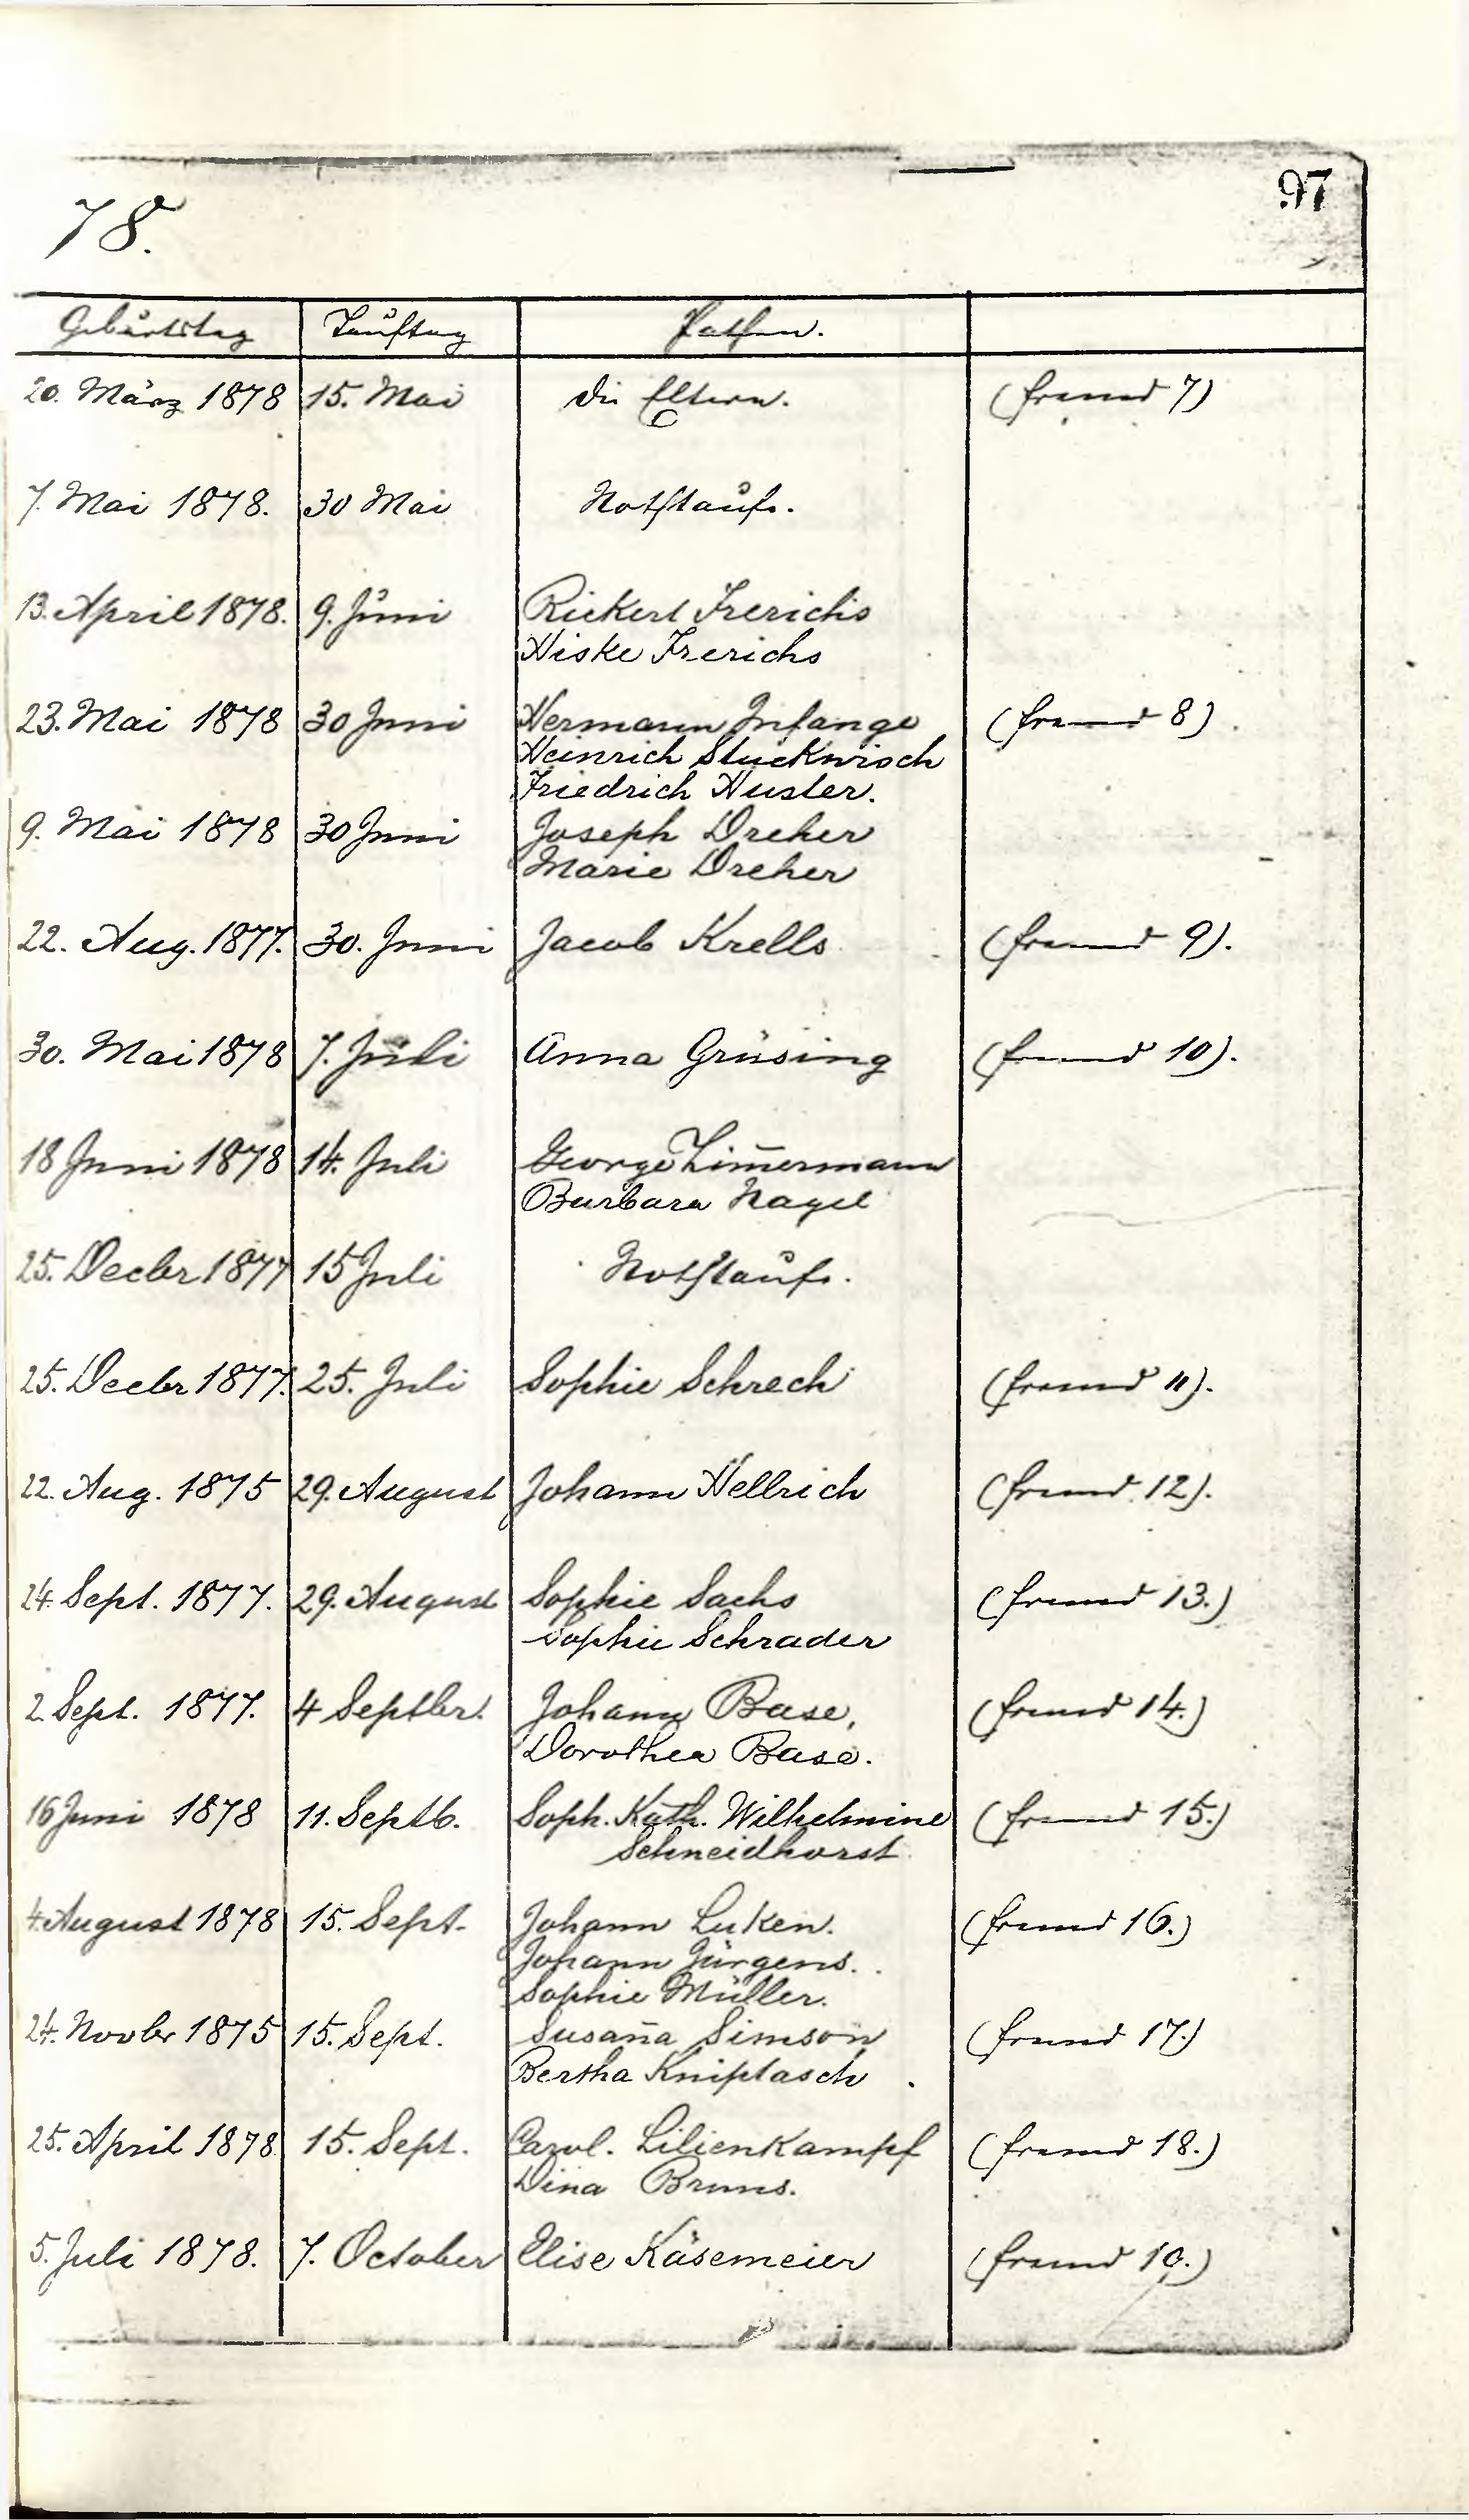 97
78.
Geburtstag Tauftag Pathen.
20. März 1878 15. Mai die Eltern. (fremd 7)
7. Mai 1878. 30 Mai Nothtaufe.
13. April 1878. 9. Juni Rickert Frerichs
Hiske Frerichs
23. Mai 1878 30 Juni Hermann Infange (fremd 8)
Heinrich Stuckwisch
Friedrich Huster.
9. Mai 1878 30 Juni Joseph Dreher
Marie Dreher
22. Aug. 1877. 30. Juni Jacob Krells (fremd 9).
30. Mai 1878 7. Juli Anna Grüsing (fremd 10).
18 Juni 1878 14. Juli George Zim̄ermann
Barbara Nagel
25. Decbr 1877 15 Juli Nothtaufe.
25. Decbr 1877. 25. Juli Sophie Schrech (fremd 11).
22. Aug. 1875 29. August Johann Hellrich (fremd 12).
24. Sept. 1877. 29. August Sophie Sachs (fremd 13.)
Sophie Schrader
2. Sept. 1877. 4 Septbr. Johann Base, (fremd 14.)
Dorothea Base.
16 Juni 1878 11. Septb. Soph. Kath. Wilhelmine (fremd 15.)
Schneidhorst
4. August 1878 15. Sept. Johann Luken. (fremd 16.)
Johann Jürgens.
Sophie Müller.
24. Novbr 1875 15. Sept. Susan̄a Simson (fremd 17.)
Bertha Kniptasch
25. April 1878 15. Sept. Carol. Lilienkampf (fremd 18.)
Dina Bruns.
5. Juli 1878. 7. October Elise Käsemeier (fremd 19.)